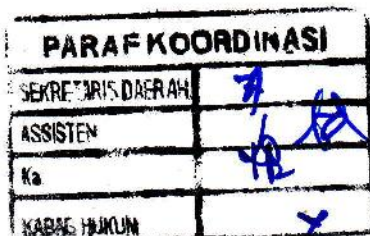 PARAF KOORDINASI
SEKRETARIS DAERAH
ASSISTEN
Ka.
KABAG HUKUM